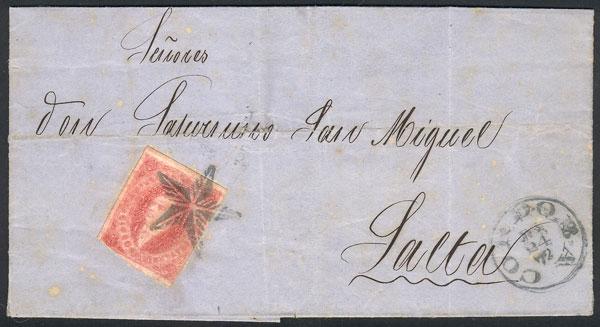 Señores
don Saturnino San Miguel
Salta
CORDOBA